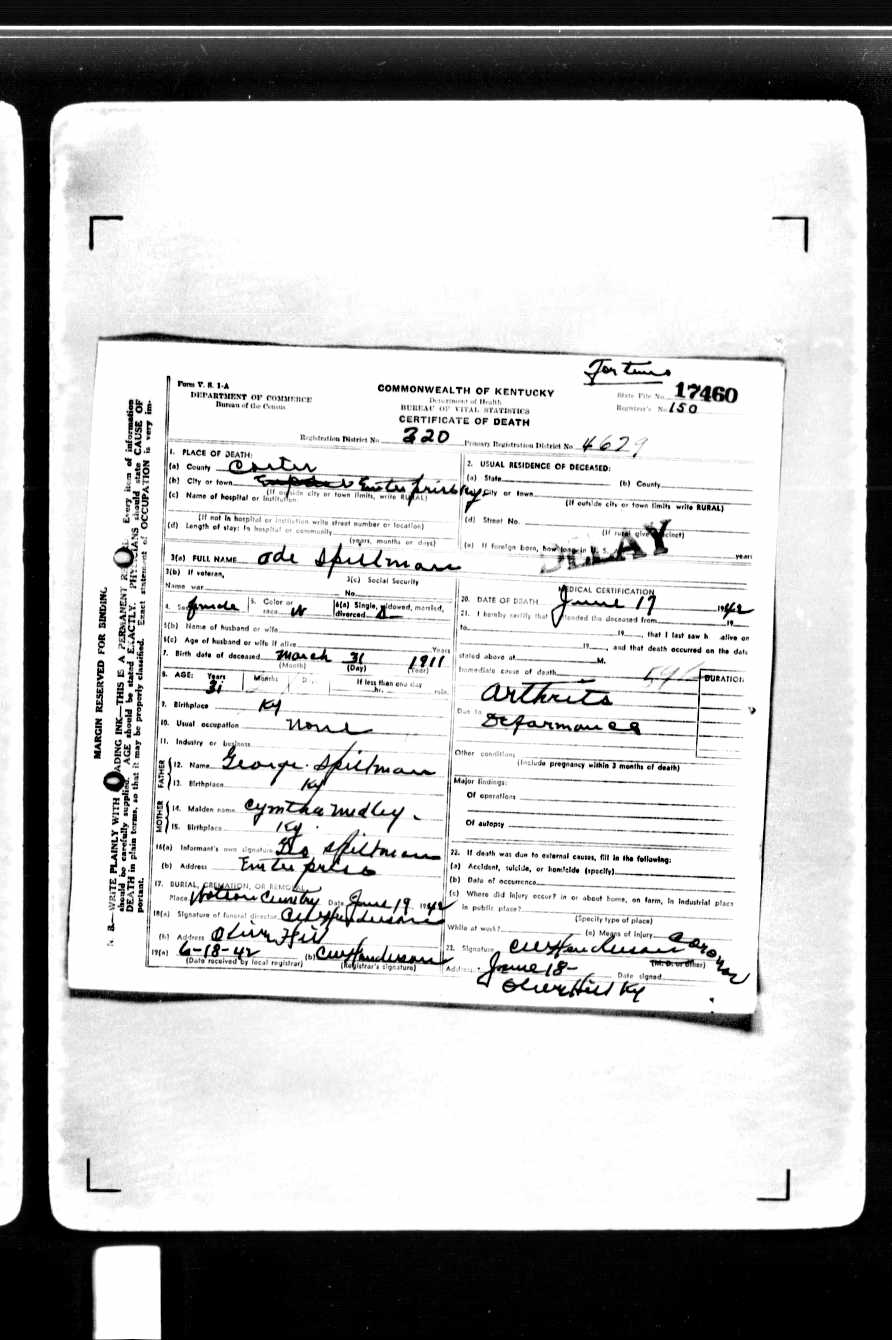 For tuns
Form V. S. 1-A
DEPARTMENT OF COMMERCE
Bureau of the Census
COMMONWEALTH OF KENTUCKY
Department of Health
BUREAU OF VITAL STATISTICS
CERTIFICATE OF DEATH
State File No. 17460
Registrar's No. 150
Registration District No. 320 Primary Registration District No. 4629
MARGIN RESERVED FOR BINDING
N. B.—WRITE PLAINLY WITH ADING INK—THIS IS A PERMANENT RE Every item of information
should be carefully supplied. AGE should be stated EXACTLY. PHYSICIANS should state CAUSE OF
DEATH in plain terms, so that it may be properly classified. Exact statement of OCCUPATION is very im-
portant.
1. PLACE OF DEATH:
(a) County Carter
(b) City or town Enterprise Ky
(If outside city or town limits, write RURAL)
(c) Name of hospital or institution
(If not in hospital or institution write street number or location)
(d) Length of stay: In hospital or community
(years, months or days)
2. USUAL RESIDENCE OF DECEASED:
(a) State (b) County
City or town
(If outside city or town limits write RURAL)
(d) Street No.
(If rural give precinct)
(e) If foreign born, how long in U. S. years
DELAY
3(a) FULL NAME Ode Spillman
3(b) If veteran,
Name war
3(c) Social Security
No.
4. Sex female 5. Color or race W 6(a) Single, widowed, married, divorced S
6(b) Name of husband or wife
6(c) Age of husband or wife if alive Years
7. Birth date of deceased March 31 1911
(Month) (Day) (Year)
8. AGE: Years 31 Months If less than one day
hr. min.
9. Birthplace Ky
10. Usual occupation None
11. Industry or business
FATHER
12. Name George Spillman
13. Birthplace Ky
MOTHER
14. Maiden name Cyntha Midley
15. Birthplace Ky.
16(a) Informant's own signature Geo Spillman
(b) Address Enterprise
17. BURIAL, CREMATION, OR REMOVAL
Place Date June 19 1942
18(a) Signature of funeral director CW Henderson
(b) Address Olive Hill
19(a) 6-18-42 (b) CW Henderson
(Date received by local registrar) (Registrar's signature)
MEDICAL CERTIFICATION
20. DATE OF DEATH June 17 1942
21. I hereby certify that I attended the deceased from 19
to 19, that I last saw h alive on
19, and that death occurred on the date
stated above at M.
Immediate cause of death DURATION
Arthrits
Due to Defarmances
Other conditions
(Include pregnancy within 3 months of death)
Major findings:
Of operations
Of autopsy
22. If death was due to external causes, fill in the following:
(a) Accident, suicide, or homicide (specify)
(b) Date of occurrence
(c) Where did injury occur? in or about home, on farm, in industrial place
in public place?
(Specify type of place)
While at work? (e) Means of injury
23. Signature CW Henderson Coroner
(M. D. or other)
Address June 18- Date signed
Olive Hill Ky